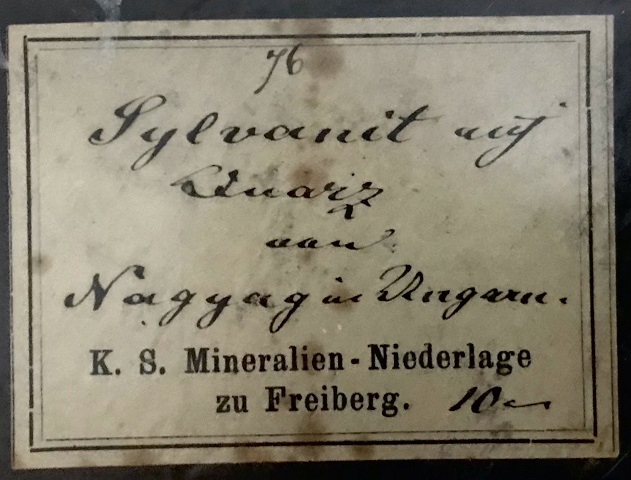 76
Sylvanit auf
Quarz
von
Nagyag in Ungarn.
K. S. Mineralien-Niederlage
zu Freiberg. 10